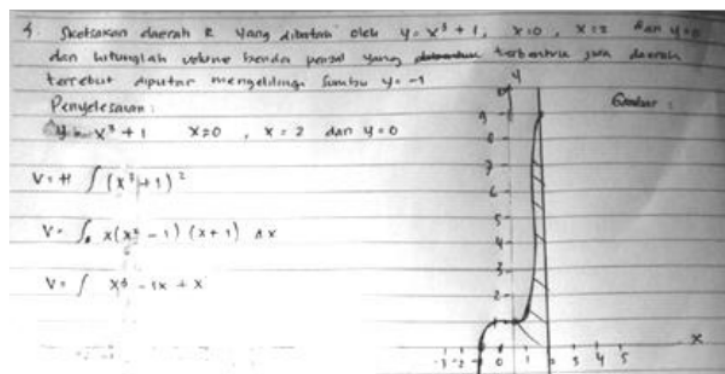 4. Sketsakan daerah R yang dibatasi oleh y = x³ + 1, x=0, x=2 dan y=0
dan hitunglah volume benda pejal yang terbentuk jika daerah
tersebut diputar mengelilingi sumbu y = -1
Penyelesaian :
y = x³ + 1 x=0 , x = 2 dan y=0
V = π ∫ (x³ + 1)²
V = ∫ x(x² - 1) (x + 1) dx
V = ∫ x⁶ - 1x + x
Gambar :
y
9
8
7
6
5
4
3
2
x
-3 -2 0 1 2 3 4 5